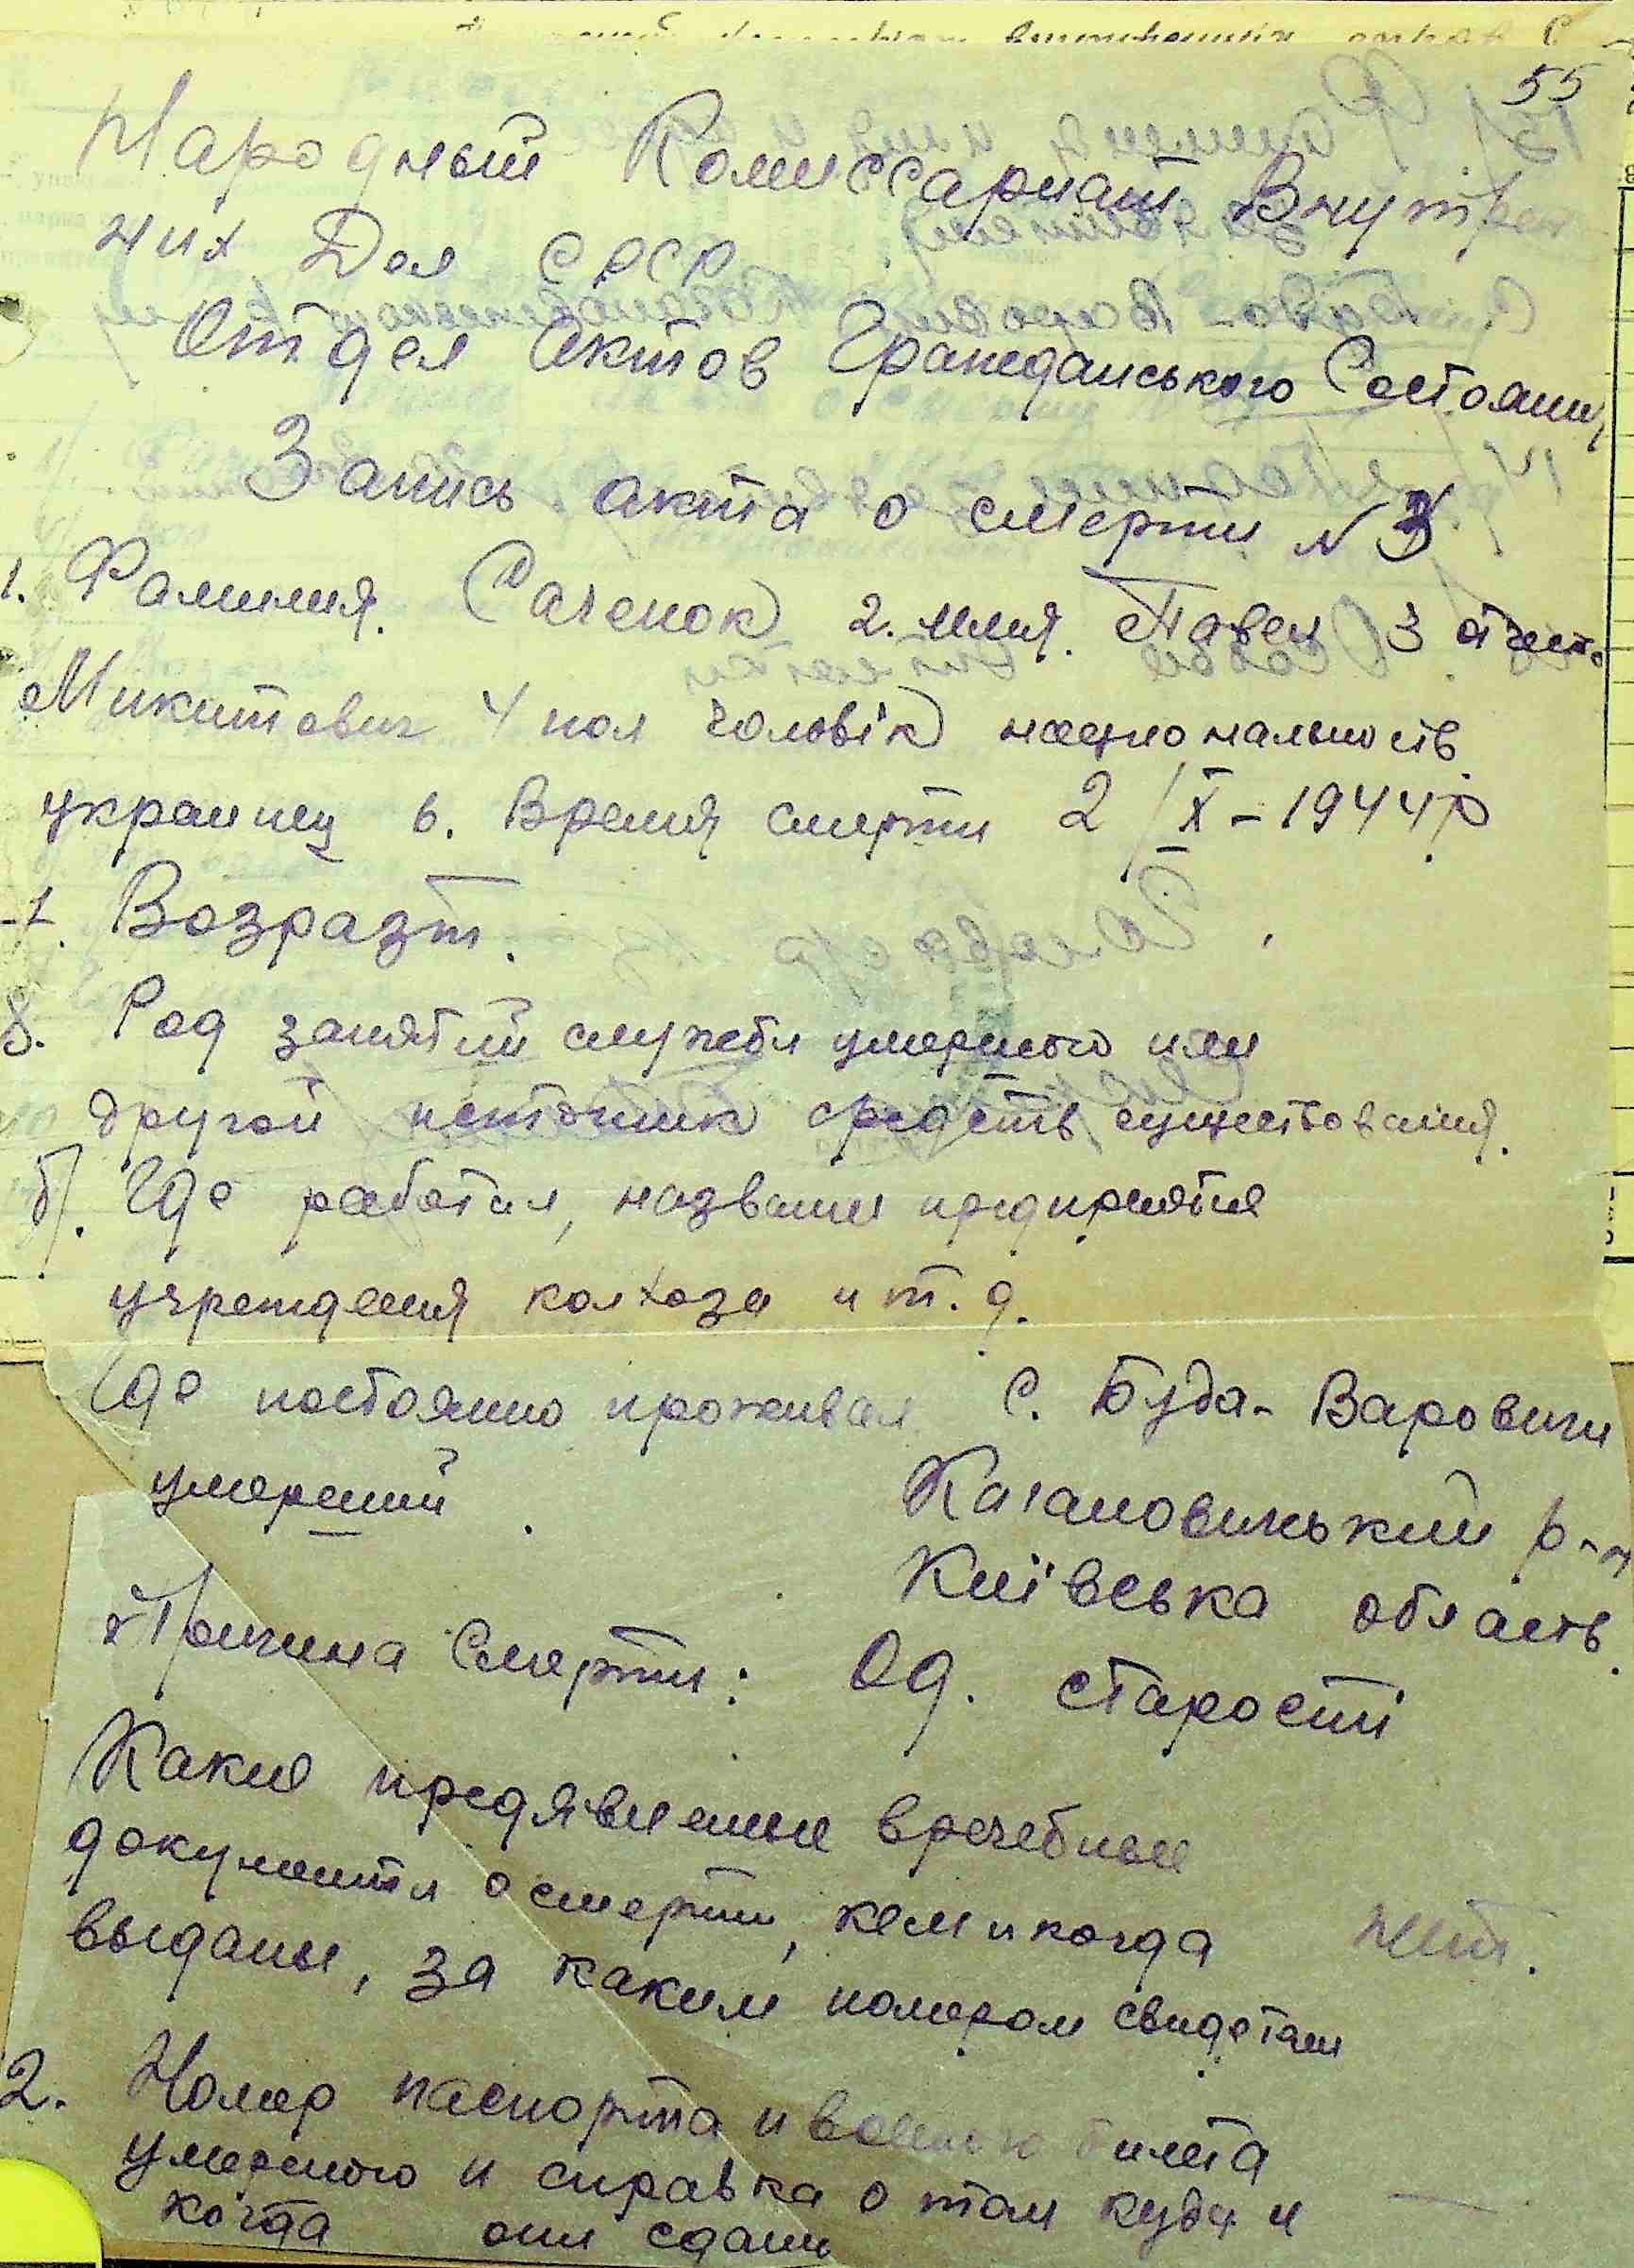 55
Народный Комиссариат Внутрен
них Дел СРСР
Отдел Актов Гражданського Состояния
Запись акта о смерти N 3
1. Фамилия. Саченок 2. Имя. Павел 3 отчест.
Микитович 4 пол чоловік националность
украинец 6. Время смерти 2/X - 1944 р
7. Возразт.
8. Род занятий службы умершого или
другой источник средств существования.
б). Где работал, название предприятия
учреждения колхоза и т. д.
Где постоянно проживал С. Буда-Варовичи
умерший. Кагановичький р-н
Київська область.
Причина Смерти: Од. старости
Какие предявленые врачебные
документы о смерти, кем и когда нет.
выданы, за каким номером свидетели
2. Номер паспорта и воен билета
умершого и справка о том куда и —
когда они сданы